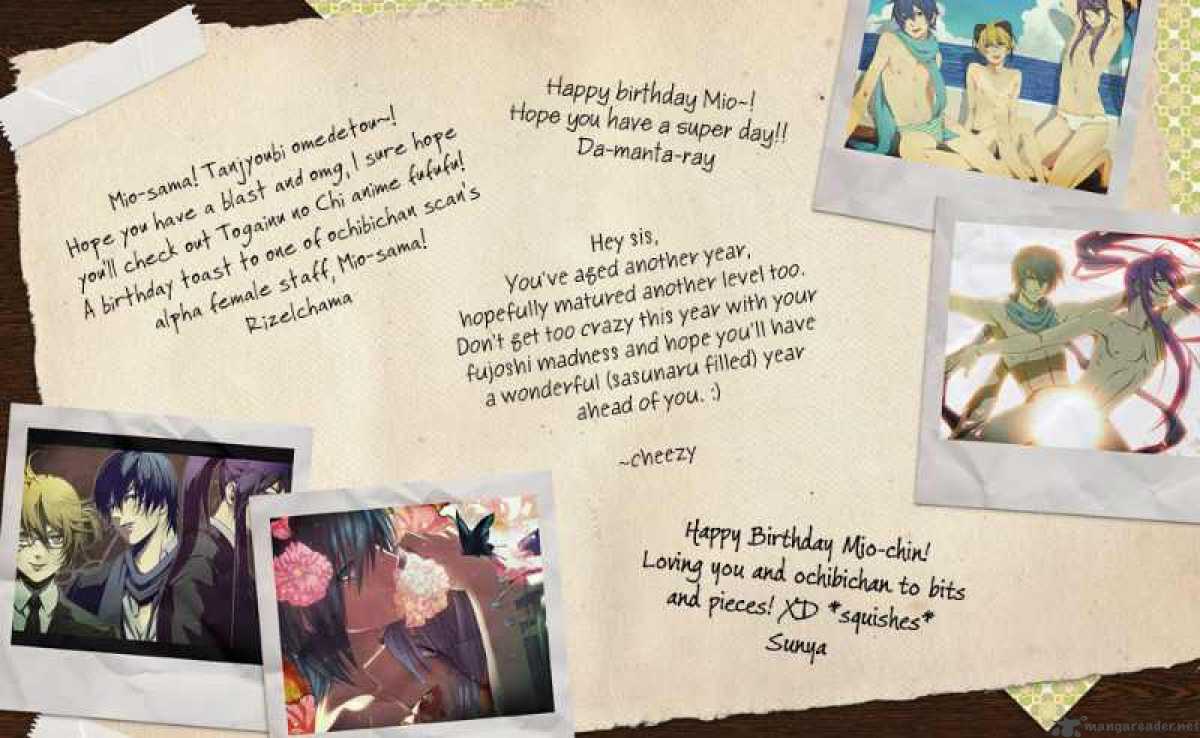 Mio-sama! Tanjyoubi omedetou~!
Hope you have a blast and omg, I sure hope
you'll check out Togainu no Chi anime fufufu!
A birthday toast to one of ochibichan scan's
alpha female staff, Mio-sama!
Rizelchama
Happy birthday Mio~!
Hope you have a super day!!
Da-manta-ray
Hey sis,
You've aged another year,
hopefully matured another level too.
Don't get too crazy this year with your
fujoshi madness and hope you'll have
a wonderful (sasunaru filled) year
ahead of you. :)
~cheezy
Happy Birthday Mio-chin!
Loving you and ochibichan to bits
and pieces! XD *squishes*
Sunya
mangareader.net